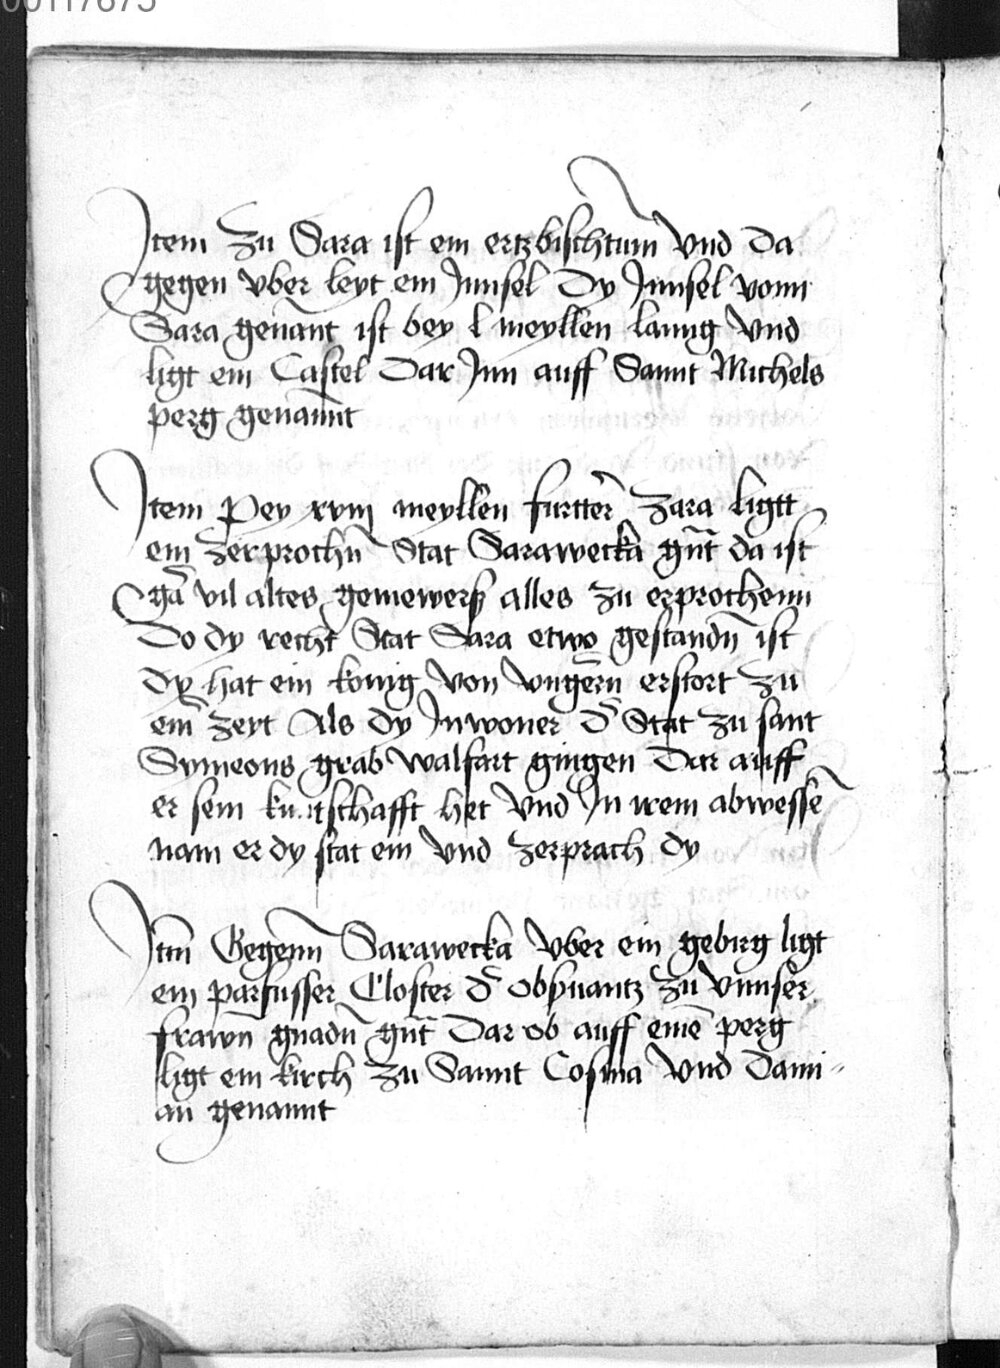 00117675
Jtem zu Sara ist ein ertzbischtum vnd da
gegen vber leyt ein Jnnsel Dy Jnnsel vonn
Sara genant ist bey l meyllen lanng vnd
ligt ein Castel Dar Jnn auff Sannt Michels
perg genannt
Jtem Pey xviij meyllen furtter zara ligtt
ein zerprochn Stat Sarawecka gnt da ist
gar vil altes gemewers alles zu erprochenn
Do dy recht Stat Sara etwo gestandn ist
dy hat ein konig von vngern erstort zu
ein zeyt Als dy Jnwoner d Stat zu sant
Symeons grab walfart gingen Dar auff
er sein kuntschafft het vnd Jn irem abwessen
nam er dy stat ein vnd zerprach dy
Jtm Gegenn Sarawecka vber ein gebirg ligt
ein parfusser Closter d obseruantz zu vnnser
frawn gnadn gnt Dar ob auff eine perg
ligt ein kirch zu Sannt Cosma vnd Dami-
an genannt